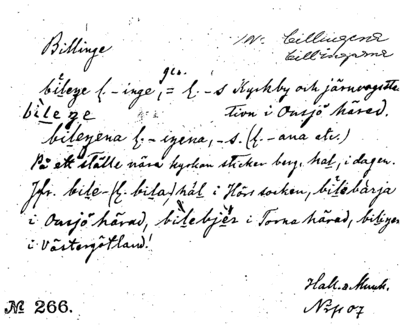 Billinge
inv. billingena
billingarna
bileŋe l. -inge, gen. = l. -s Kyrkby och järnvägssta-
bileŋe
tion i Onsjö härad.
bileŋena l. -iŋena, -s. (l. -ana etc.)
På ett ställe nära kyrkan sticker berg, hal, i dagen.
Jfr. bile-(l. bila)hal i Hörs socken, bilebärja
i Onsjö härad, bilebjer i Torna härad, bileŋen
i Västergötland!
Hall. o Munk.
07
№ 266.